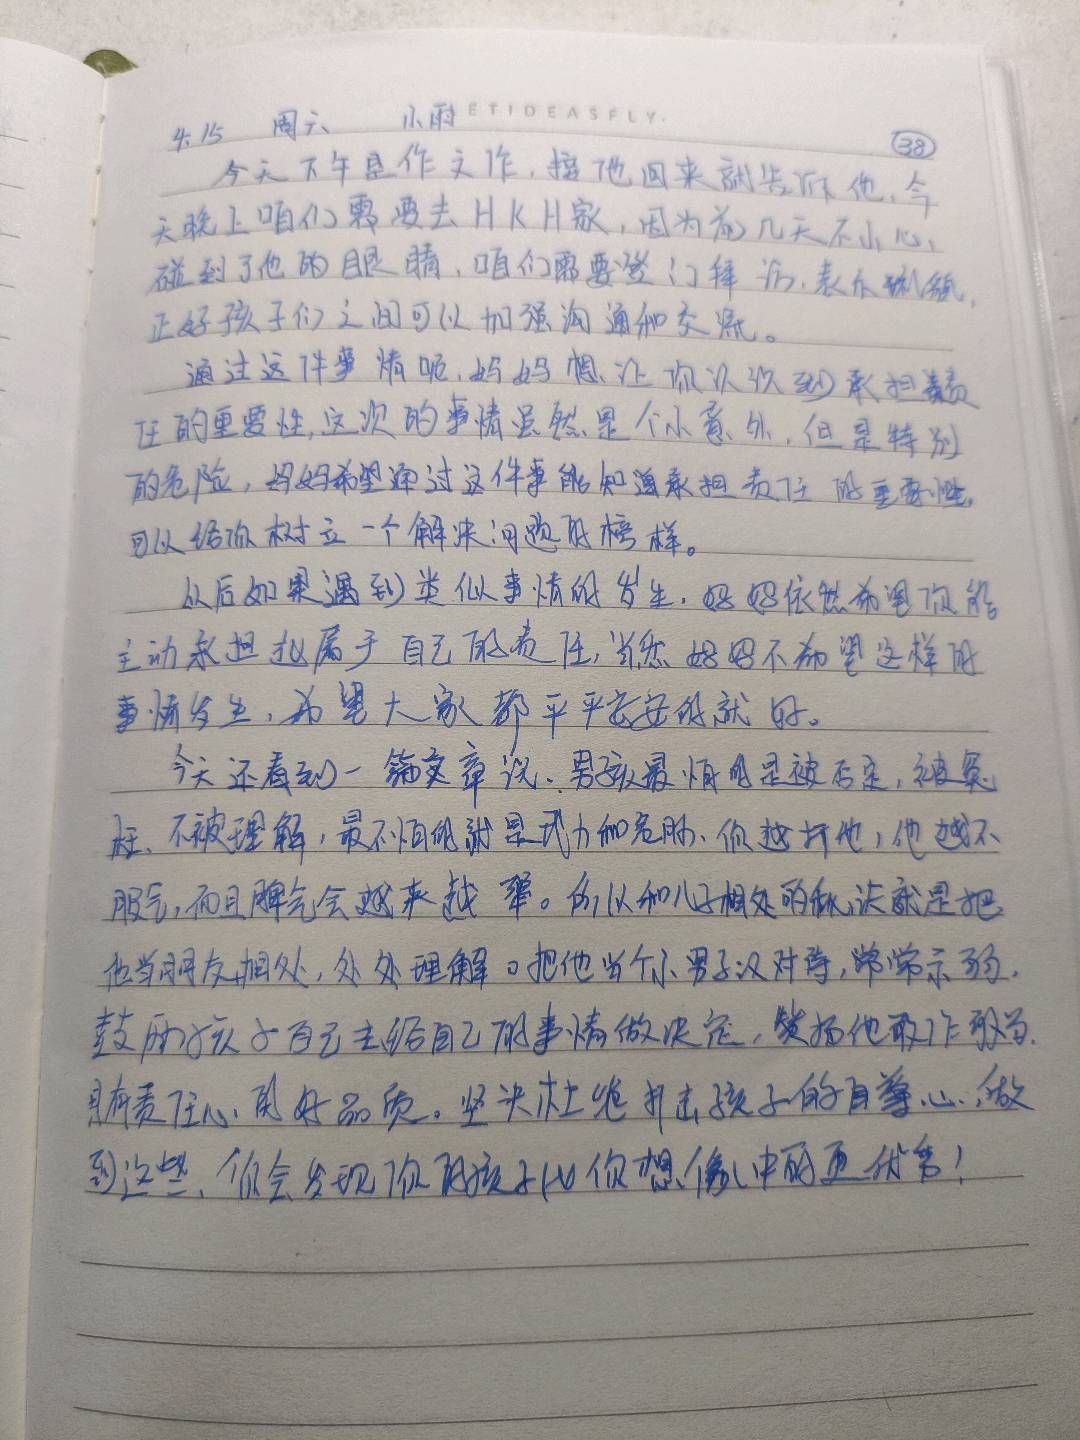 ETIDEASFLY.
4.15 周六 小雨 38
今天下午是作文作,接他回来就告诉他,今
天晚上咱们需要去HKH家,因为前几天不小心,
碰到了他的眼睛,咱们需要登门拜访,表示
正好孩子们之间可以加强沟通和交流。
通过这件事情呢,妈妈想让你认识到承担责
任的重要性,这次的事情虽然是个小意外,但是特别
的危险,妈妈希望通过这件事能知道承担责任的重要性,
可以给你树立一个解决问题的榜样。
以后如果遇到类似事情的发生,妈妈依然希望你能
主动承担起属于自己的责任,当然妈妈不希望这样的
事情发生,希望大家都平平安安的就好。
今天还看到一篇文章说、男孩最怕的是被否定,被冤
枉、不被理解,最不怕的就是武力和危胁、你越打他,他越不
服气,而且脾气会越来越犟。所以和儿子相处的秘诀就是把
他当朋友相处,处处理解。把他当个小男子汉对待,常常示弱,
鼓励孩子自己去给自己的事情做决定,赞扬他敢作敢当、
具有责任心、的好品质。坚决杜绝打击孩子的自尊心,做
到这些、你会发现你的孩子比你想像中的更优秀!